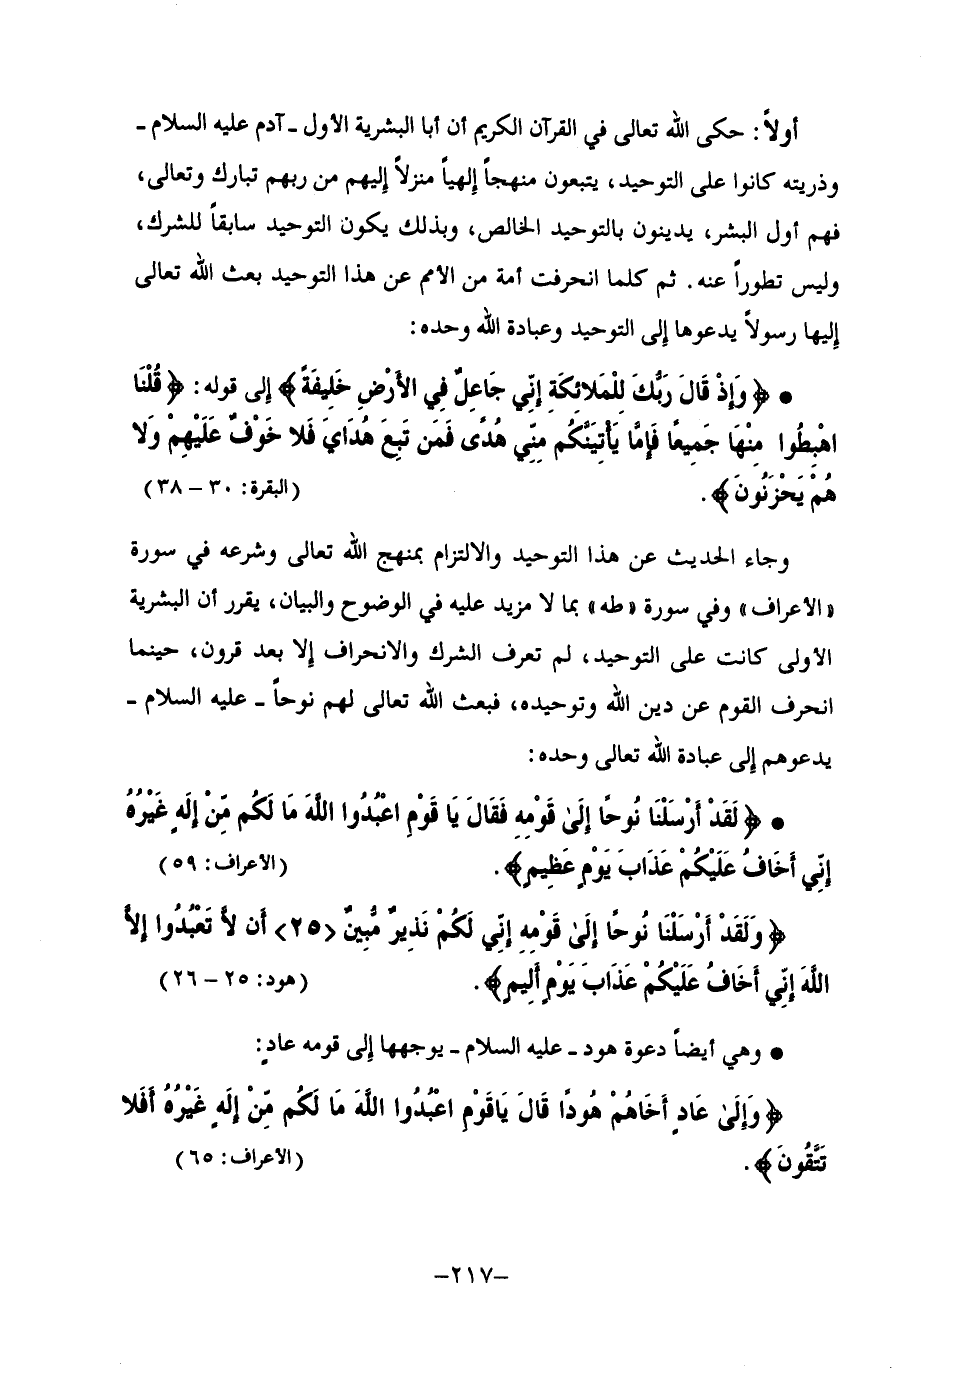 أولاً: حكى الله تعالى في القرآن الكريم أن أبا البشرية الأول ـ آدم عليه السلام ـ
وذريته كانوا على التوحيد، يتبعون منهجاً إلهياً منزلاً إليهم من ربهم تبارك وتعالى،
فهم أول البشر، يدينون بالتوحيد الخالص، وبذلك يكون التوحيد سابقاً للشرك،
وليس تطوراً عنه. ثم كلما انحرفت أمة من الأمم عن هذا التوحيد بعث الله تعالى
إليها رسولاً يدعوها إلى التوحيد وعبادة الله وحده:
● ﴿وَإِذْ قَالَ رَبُّكَ لِلْمَلائِكَةِ إِنِّي جَاعِلٌ فِي الأَرْضِ خَلِيفَةً﴾ إلى قوله: ﴿قُلْنَا
اهْبِطُوا مِنْهَا جَمِيعًا فَإِمَّا يَأْتِيَنَّكُم مِّنِّي هُدًى فَمَن تَبِعَ هُدَايَ فَلا خَوْفٌ عَلَيْهِمْ وَلا
هُمْ يَحْزَنُونَ﴾. (البقرة: ٣٠ – ٣٨)
وجاء الحديث عن هذا التوحيد والالتزام بمنهج الله تعالى وشرعه في سورة
«الأعراف» وفي سورة «طه» بما لا مزيد عليه في الوضوح والبيان، يقرر أن البشرية
الأولى كانت على التوحيد، لم تعرف الشرك والانحراف إلا بعد قرون، حينما
انحرف القوم عن دين الله وتوحيده، فبعث الله تعالى لهم نوحاً ـ عليه السلام ـ
يدعوهم إلى عبادة الله تعالى وحده:
● ﴿لَقَدْ أَرْسَلْنَا نُوحًا إِلَىٰ قَوْمِهِ فَقَالَ يَا قَوْمِ اعْبُدُوا اللَّهَ مَا لَكُم مِّنْ إِلَهٍ غَيْرُهُ
إِنِّي أَخَافُ عَلَيْكُمْ عَذَابَ يَوْمٍ عَظِيمٍ﴾. (الأعراف: ٥٩)
﴿وَلَقَدْ أَرْسَلْنَا نُوحًا إِلَىٰ قَوْمِهِ إِنِّي لَكُمْ نَذِيرٌ مُّبِينٌ <٢٥> أَن لاَّ تَعْبُدُوا إِلاَّ
اللَّهَ إِنِّي أَخَافُ عَلَيْكُمْ عَذَابَ يَوْمٍ أَلِيمٍ﴾. (هود: ٢٥ – ٢٦)
● وهي أيضاً دعوة هود ـ عليه السلام ـ يوجهها إلى قومه عادٍ:
﴿وَإِلَىٰ عَادٍ أَخَاهُمْ هُودًا قَالَ يَاقَوْمِ اعْبُدُوا اللَّهَ مَا لَكُم مِّنْ إِلَهٍ غَيْرُهُ أَفَلا
تَتَّقُونَ﴾. (الأعراف: ٦٥)
–٢١٧–